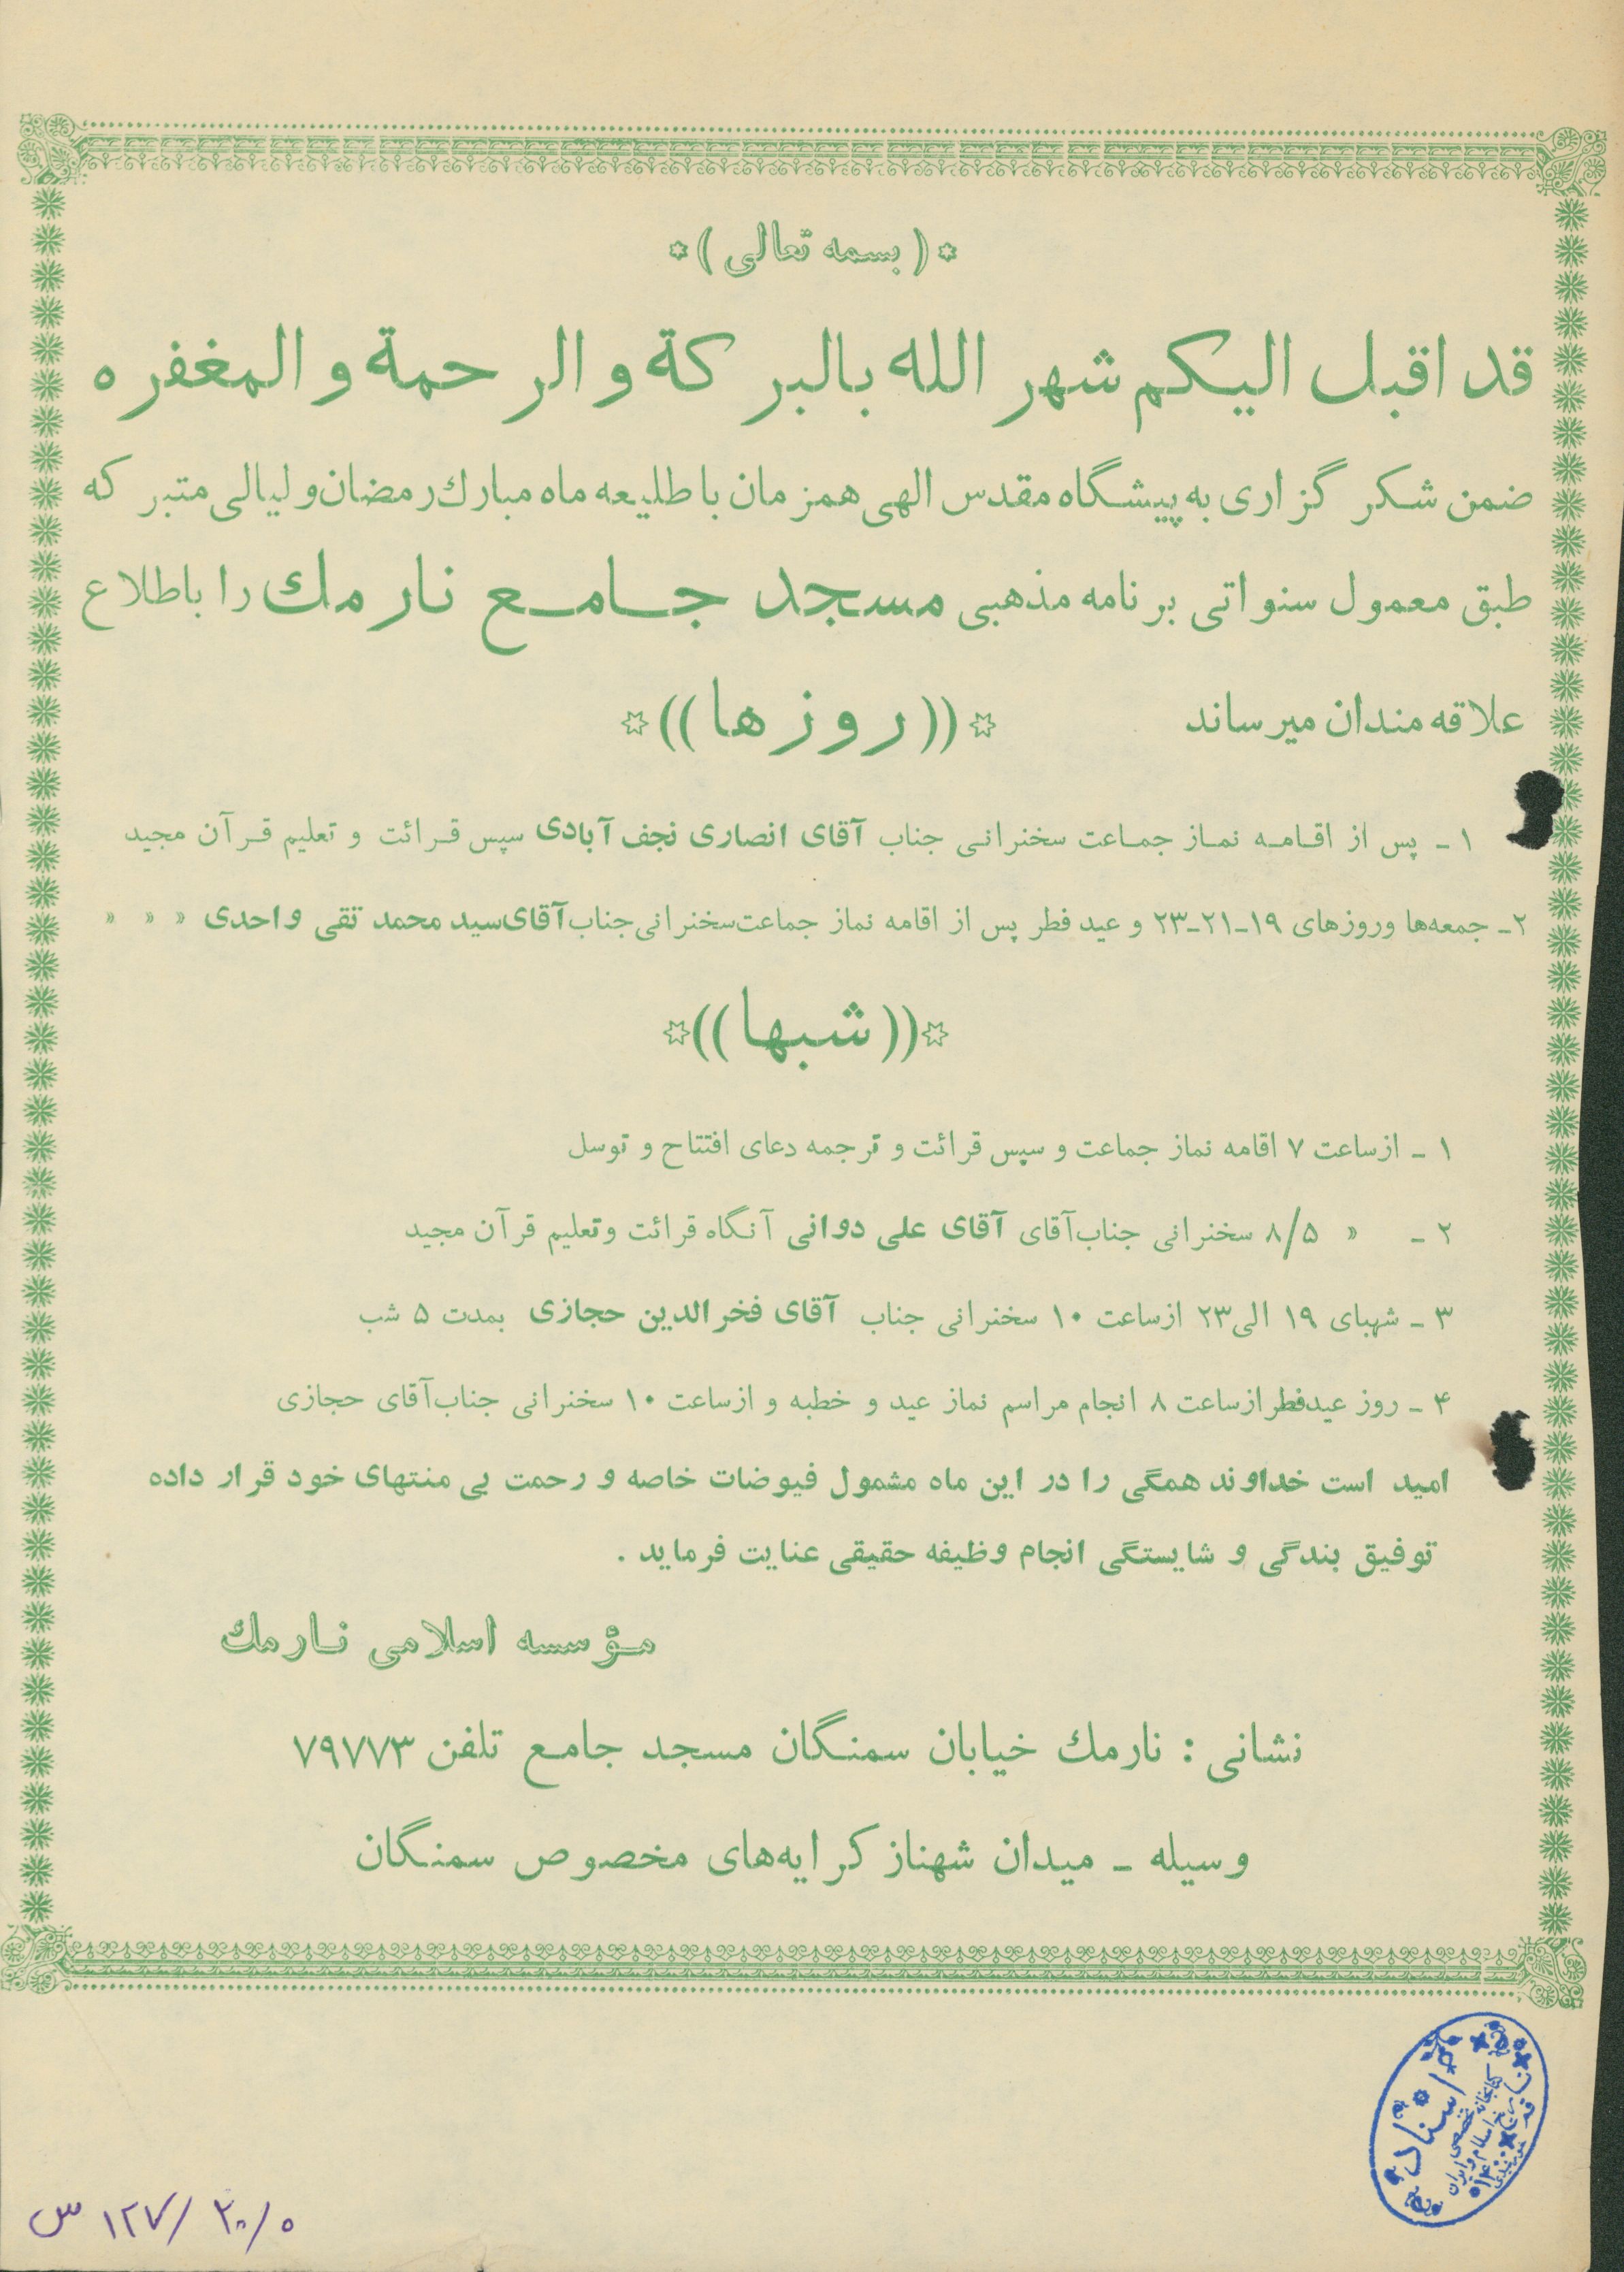 * ( بسمه تعالی ) *
قد اقبل الیکم شهر الله بالبركة و الرحمة و المغفره
ضمن شکر گزاری به پیشگاه مقدس الهی همزمان با طلیعه ماه مبارك رمضان و لیالی متبر که
طبق معمول سنواتی برنامه مذهبی مسجد جـامـع نارمك را باطلاع
علاقه مندان میرساند
* (( روزها )) *
۱ ـ پس از اقـامـه نمـاز جمـاعت سخنرانـی جناب آقای انصاری نجف آبادی سپس قـرائت و تعلیم قـرآن مجید
۲ـ جمعه‌ها وروزهای ۱۹ـ۲۱ـ۲۳ و عید فطر پس از اقامه نماز جماعت سخنرانی جناب آقای سید محمد تقی واحدی » » »
* (( شبها )) *
۱ ـ ازساعت ۷ اقامه نماز جماعت و سپس قرائت و ترجمه دعای افتتاح و توسل
۲ ـ » ۸/۵ سخنرانی جناب‌آقای آقای علی دوانی آنگاه قرائت وتعلیم قرآن مجید
۳ ـ شهبای ۱۹ الی ۲۳ ازساعت ۱۰ سخنرانی جناب آقای فخرالدین حجازی بمدت ۵ شب
۴ ـ روز عیدفطر ازساعت ۸ انجام مراسم نماز عید و خطبه و ازساعت ۱۰ سخنرانی جناب‌آقای حجازی
امید است خداوند همگی را در این ماه مشمول فیوضات خاصه و رحمت بی منتهای خود قرار داده
توفیق بندگی و شایستگی انجام وظیفه حقیقی عنایت فرماید .
مـؤسسه اسلامی نـارمك
نشانی : نارمك خیابان سمنگان مسجد جامع تلفن ۷۹۷۷۳
وسیله ـ میدان شهناز کرایه‌های مخصوص سمنگان
اسناد
کتابخانه تخصصی
تاریخ اسلام و ایران